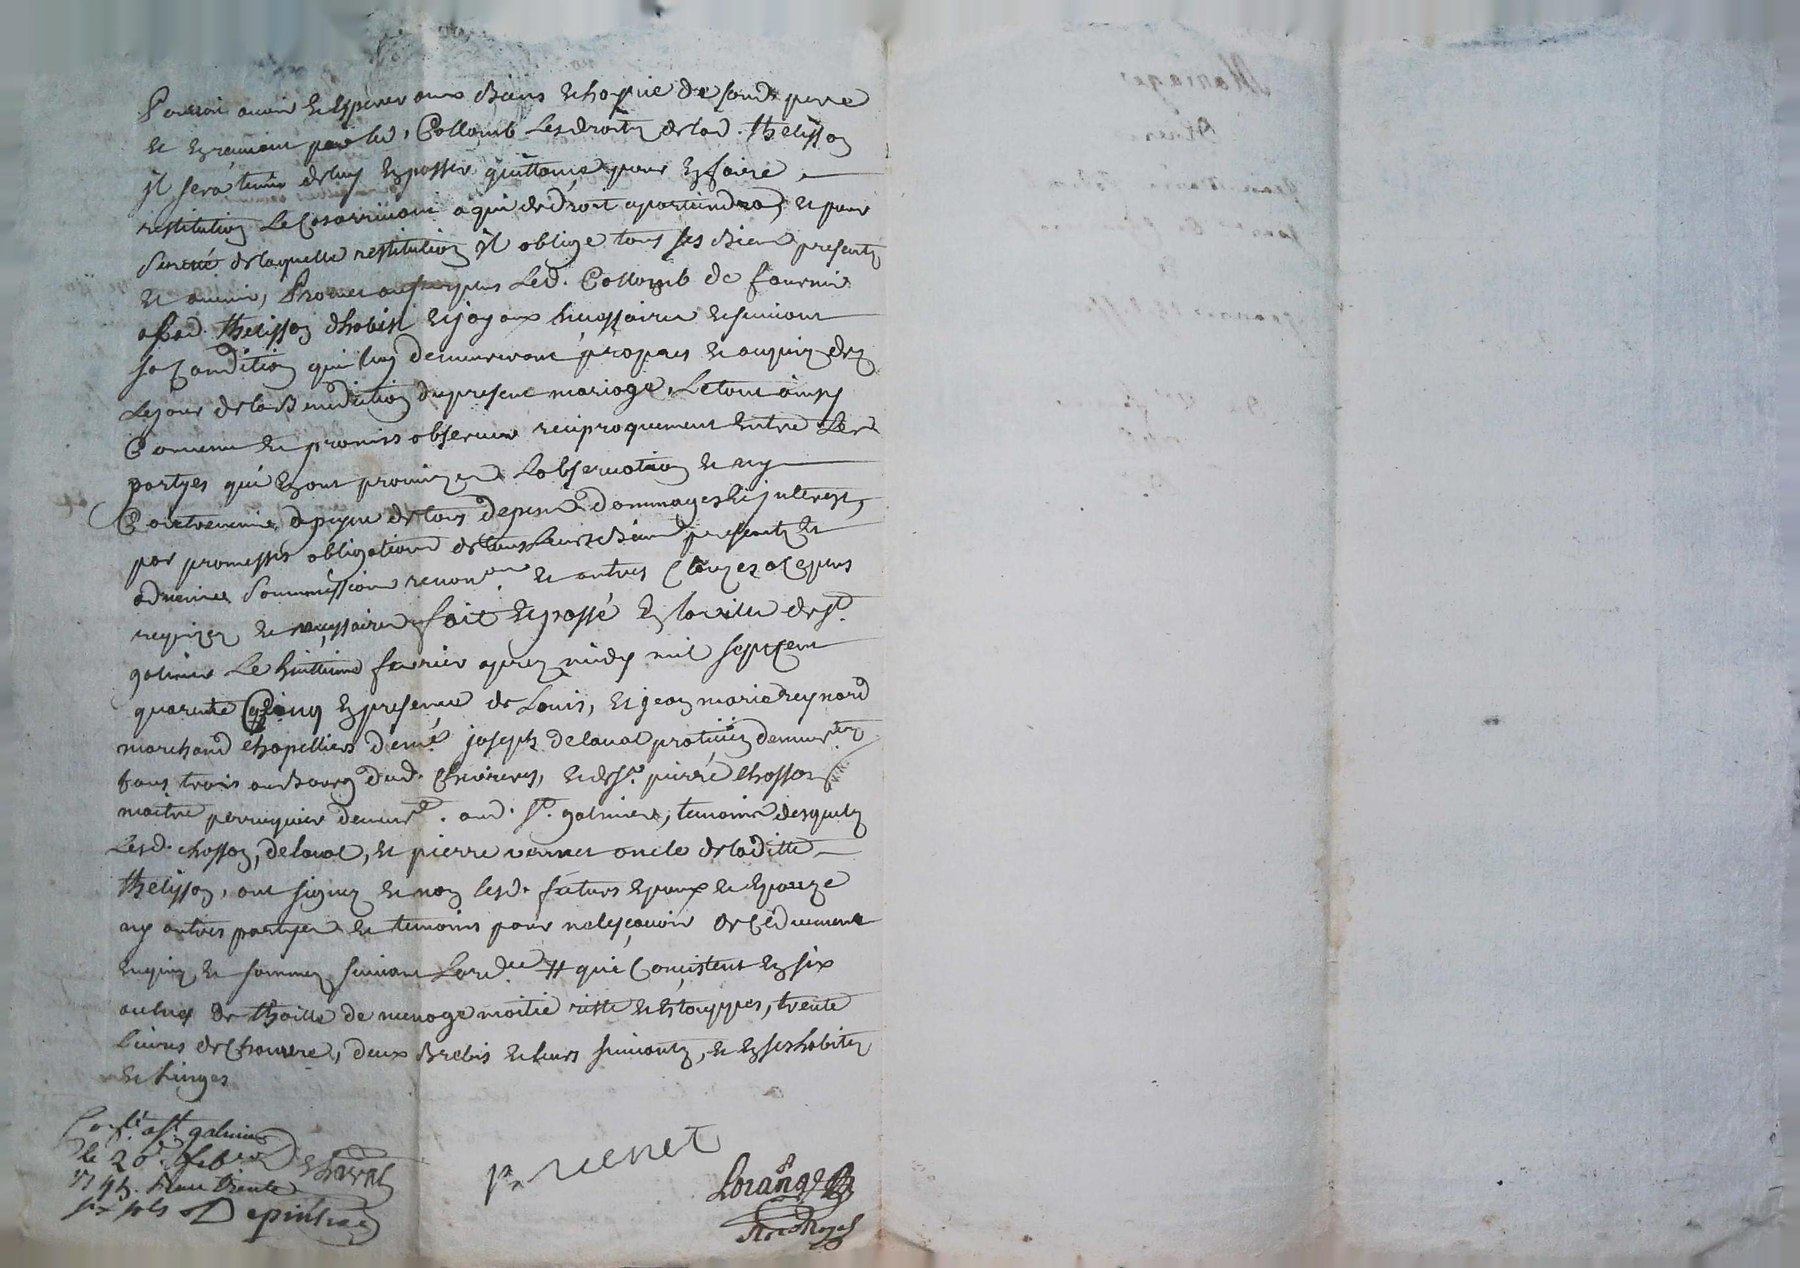 Pourroit avoir et esperer aux Biens et hoyrie de sond. pere
et exigeant par led. Collomb les droits de lad. thelisson
il sera tenu de luy en passer quittance pour en faire
restitution le cas arrivant a qui de droit apartiendra, et pour
seureté de laquelle restitution il oblige tous ses Biens presents
et avenir, Promet en outre led. Collomb de fournir
a lad. thelisson d'habits et joyaux necessaires et suivant
sa Condition qui luy demeureront propres et acquis dez
le jour de la Benediction du present mariage, Le tout ainsy
Convenu et promis observer reciproquement entre les
partyes qui en ont promis l'observation et n'y
Contrevenir a peyne de tous depens dommages et interests,
par promesses obligations de tous leurs Biens presents et
advenir soummissions renon.ons et autres Clauzes
requizes et necessaires, fait et passé en la ville de St.
galmier Le huittieme fevrier apres midy mil sept cent
quarente Cinq en presence de Louis, et jean marie reynard
marchand chapelliers dem.t joseph delaval praticien demeur.ts
tous trois au Bourg dud. Chevrieres, et de Sr. pierre chosson
maitre perruquier demeur.t aud. St. galmier, temoins desquels
Lesd. chosson, delaval, et pierre vernet oncle de laditte
thelisson, ont signez et non lesd. futurs Epoux et Epouze
ny autres partyes et temoins pour ne le sçavoir de Ce duement
enquis et sommez suivant L'ord.ce # qui Consistent en six
aulnes de thoille de menage moitié ritte et Etouppes, trente
livres de Chanvre, deux Brebis et leurs suivants, et en ses habits
et linges
Con.lé a St. galmier
le 20e. febvrier
1745. Reçu trente
six sols Depinhac
Delaval
p. vernet
Lorange
No.re Royal
Mariage